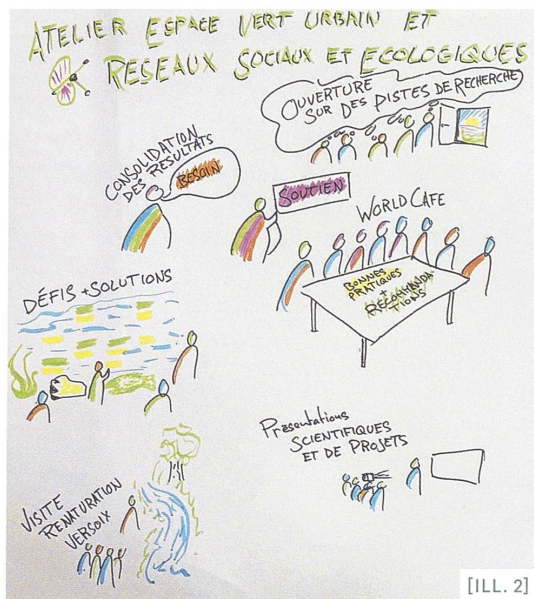 ATELIER ESPACE VERT URBAIN ET
RESEAUX SOCIAUX ET ECOLOGIQUES
OUVERTURE
SUR DES PISTES DE RECHERCHE
CONSOLIDATION
DES RESULTATS
BESOIN
SOUTIEN
WORLD CAFE
BONNES
PRATIQUES
+
RECOMMANDA-
TIONS
DÉFIS + SOLUTIONS
Présentations
SCIENTIFIQUES
ET DE PROJETS
VISITE
RENATURATION
VERSOIX
[ILL. 2]